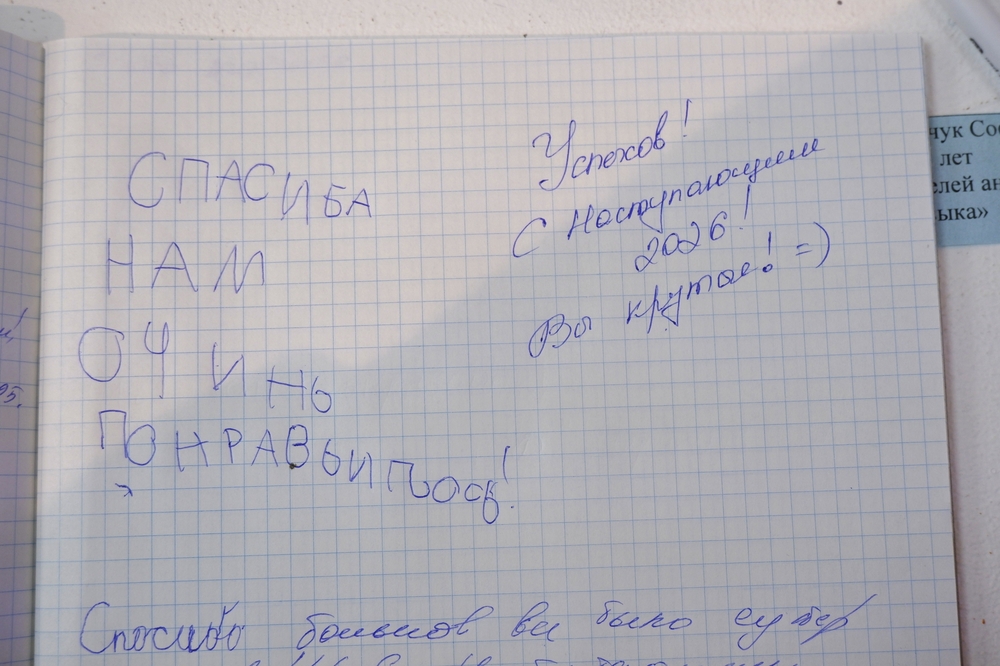 СПАСИБА
НАМ
ОЧИНЬ
Успехов!
С Наступающим
2026!
Вы крутые! =)
Спосибо большов ви было супер
чук Соф
лет
елей ан
ыка»
95.